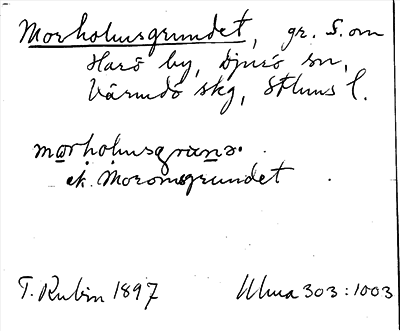 Morholmsgrundet, gr. S. om
Harö by, Djurö sn,
Värmdö skg, Sthlms l.
morholmsgrunə.
ek. Moromsgrundet
T. Rubin 1897
Ulma 303:1003